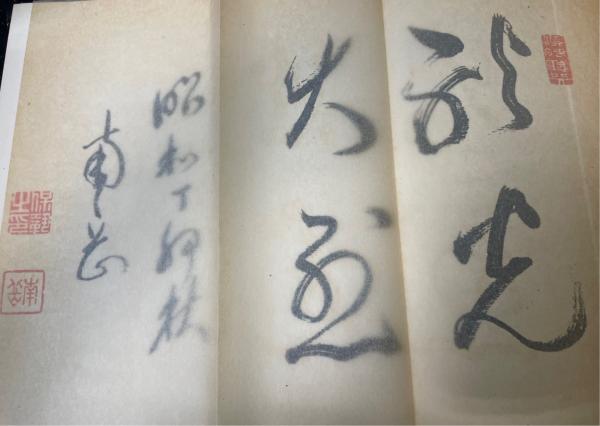 耿光
大烈
昭和丁卯秋
南